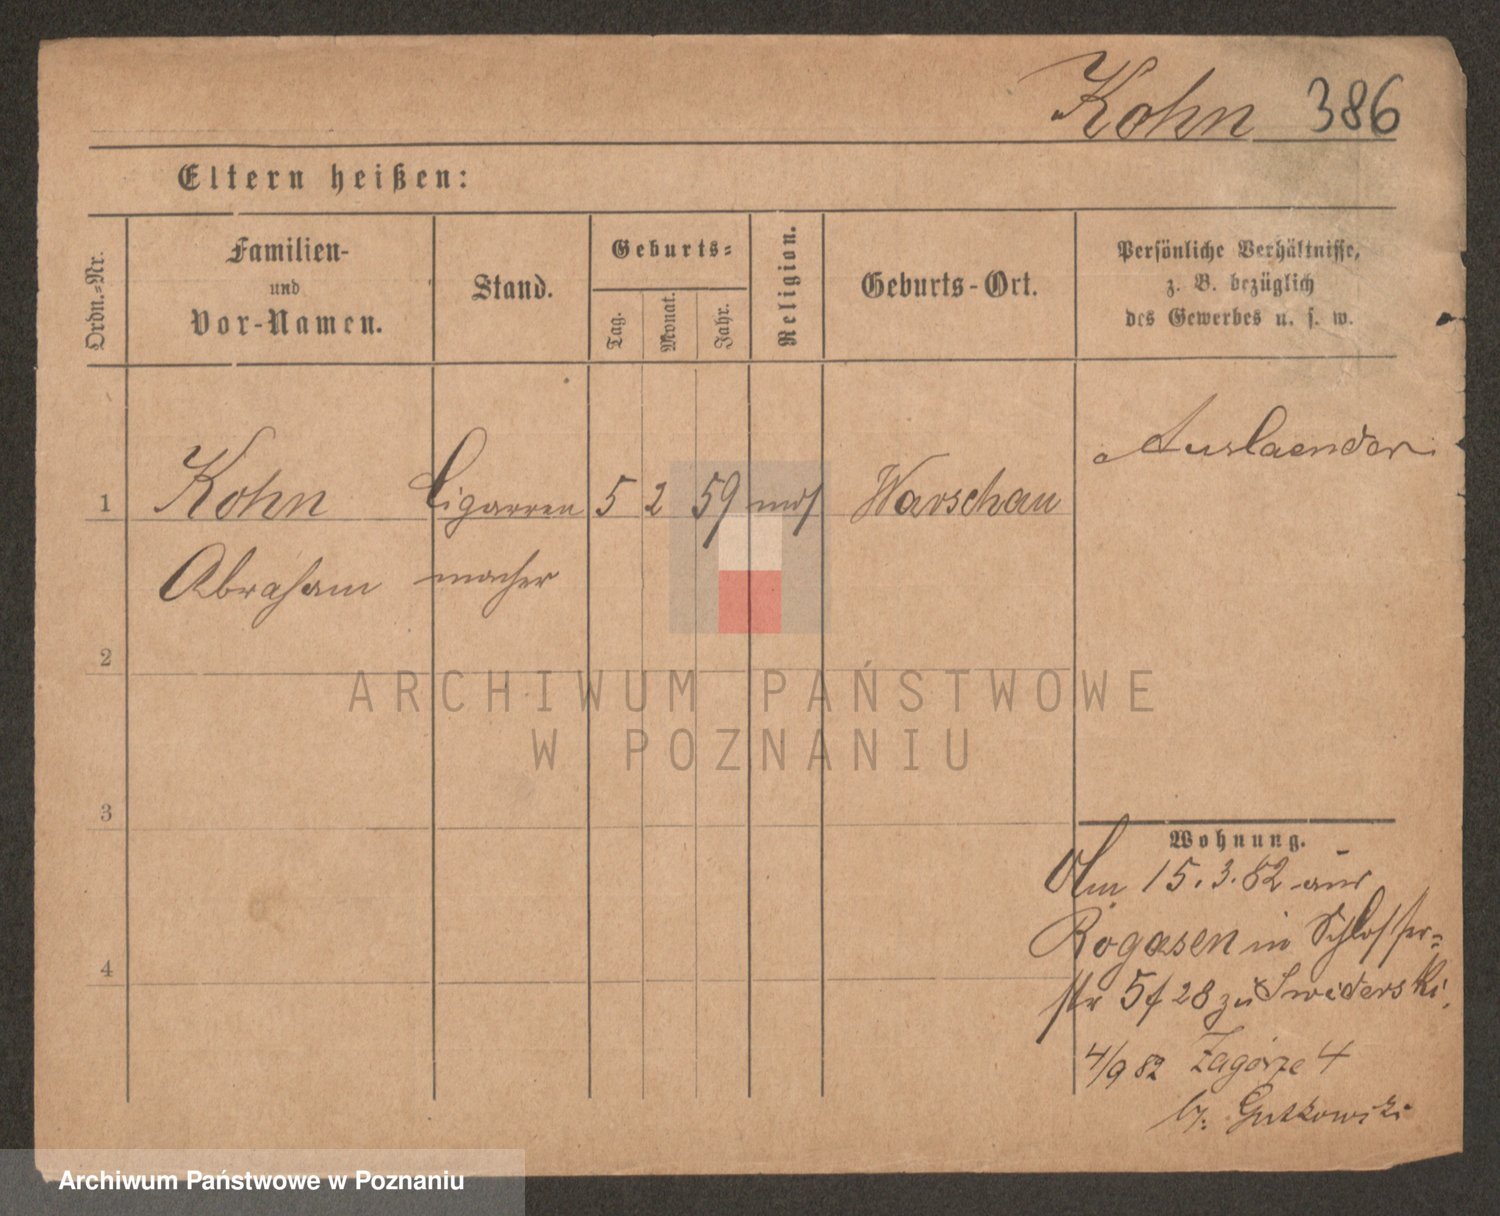 Kohn 386
Eltern heißen:
Ordn.-Nr.
Familien-
und
Vor-Namen.
Stand.
Geburts-
Tag.
Monat.
Jahr.
Religion.
Geburts-Ort.
Persönliche Verhältnisse,
z. B. bezüglich
des Gewerbes u. s. w.
Auslaender
1 Kohn Cigarren 5 2 59 mos Warschau
Abraham macher
2
ARCHIWUM PAŃSTWOWE
W POZNANIU
3
Wohnung.
Am 15.3.82 aus
Rogasen in Schlosser-
str 5 28 zu Swiderski.
4
4/9 82 Zagórze 4
b. Gutkowski
Archiwum Państwowe w Poznaniu